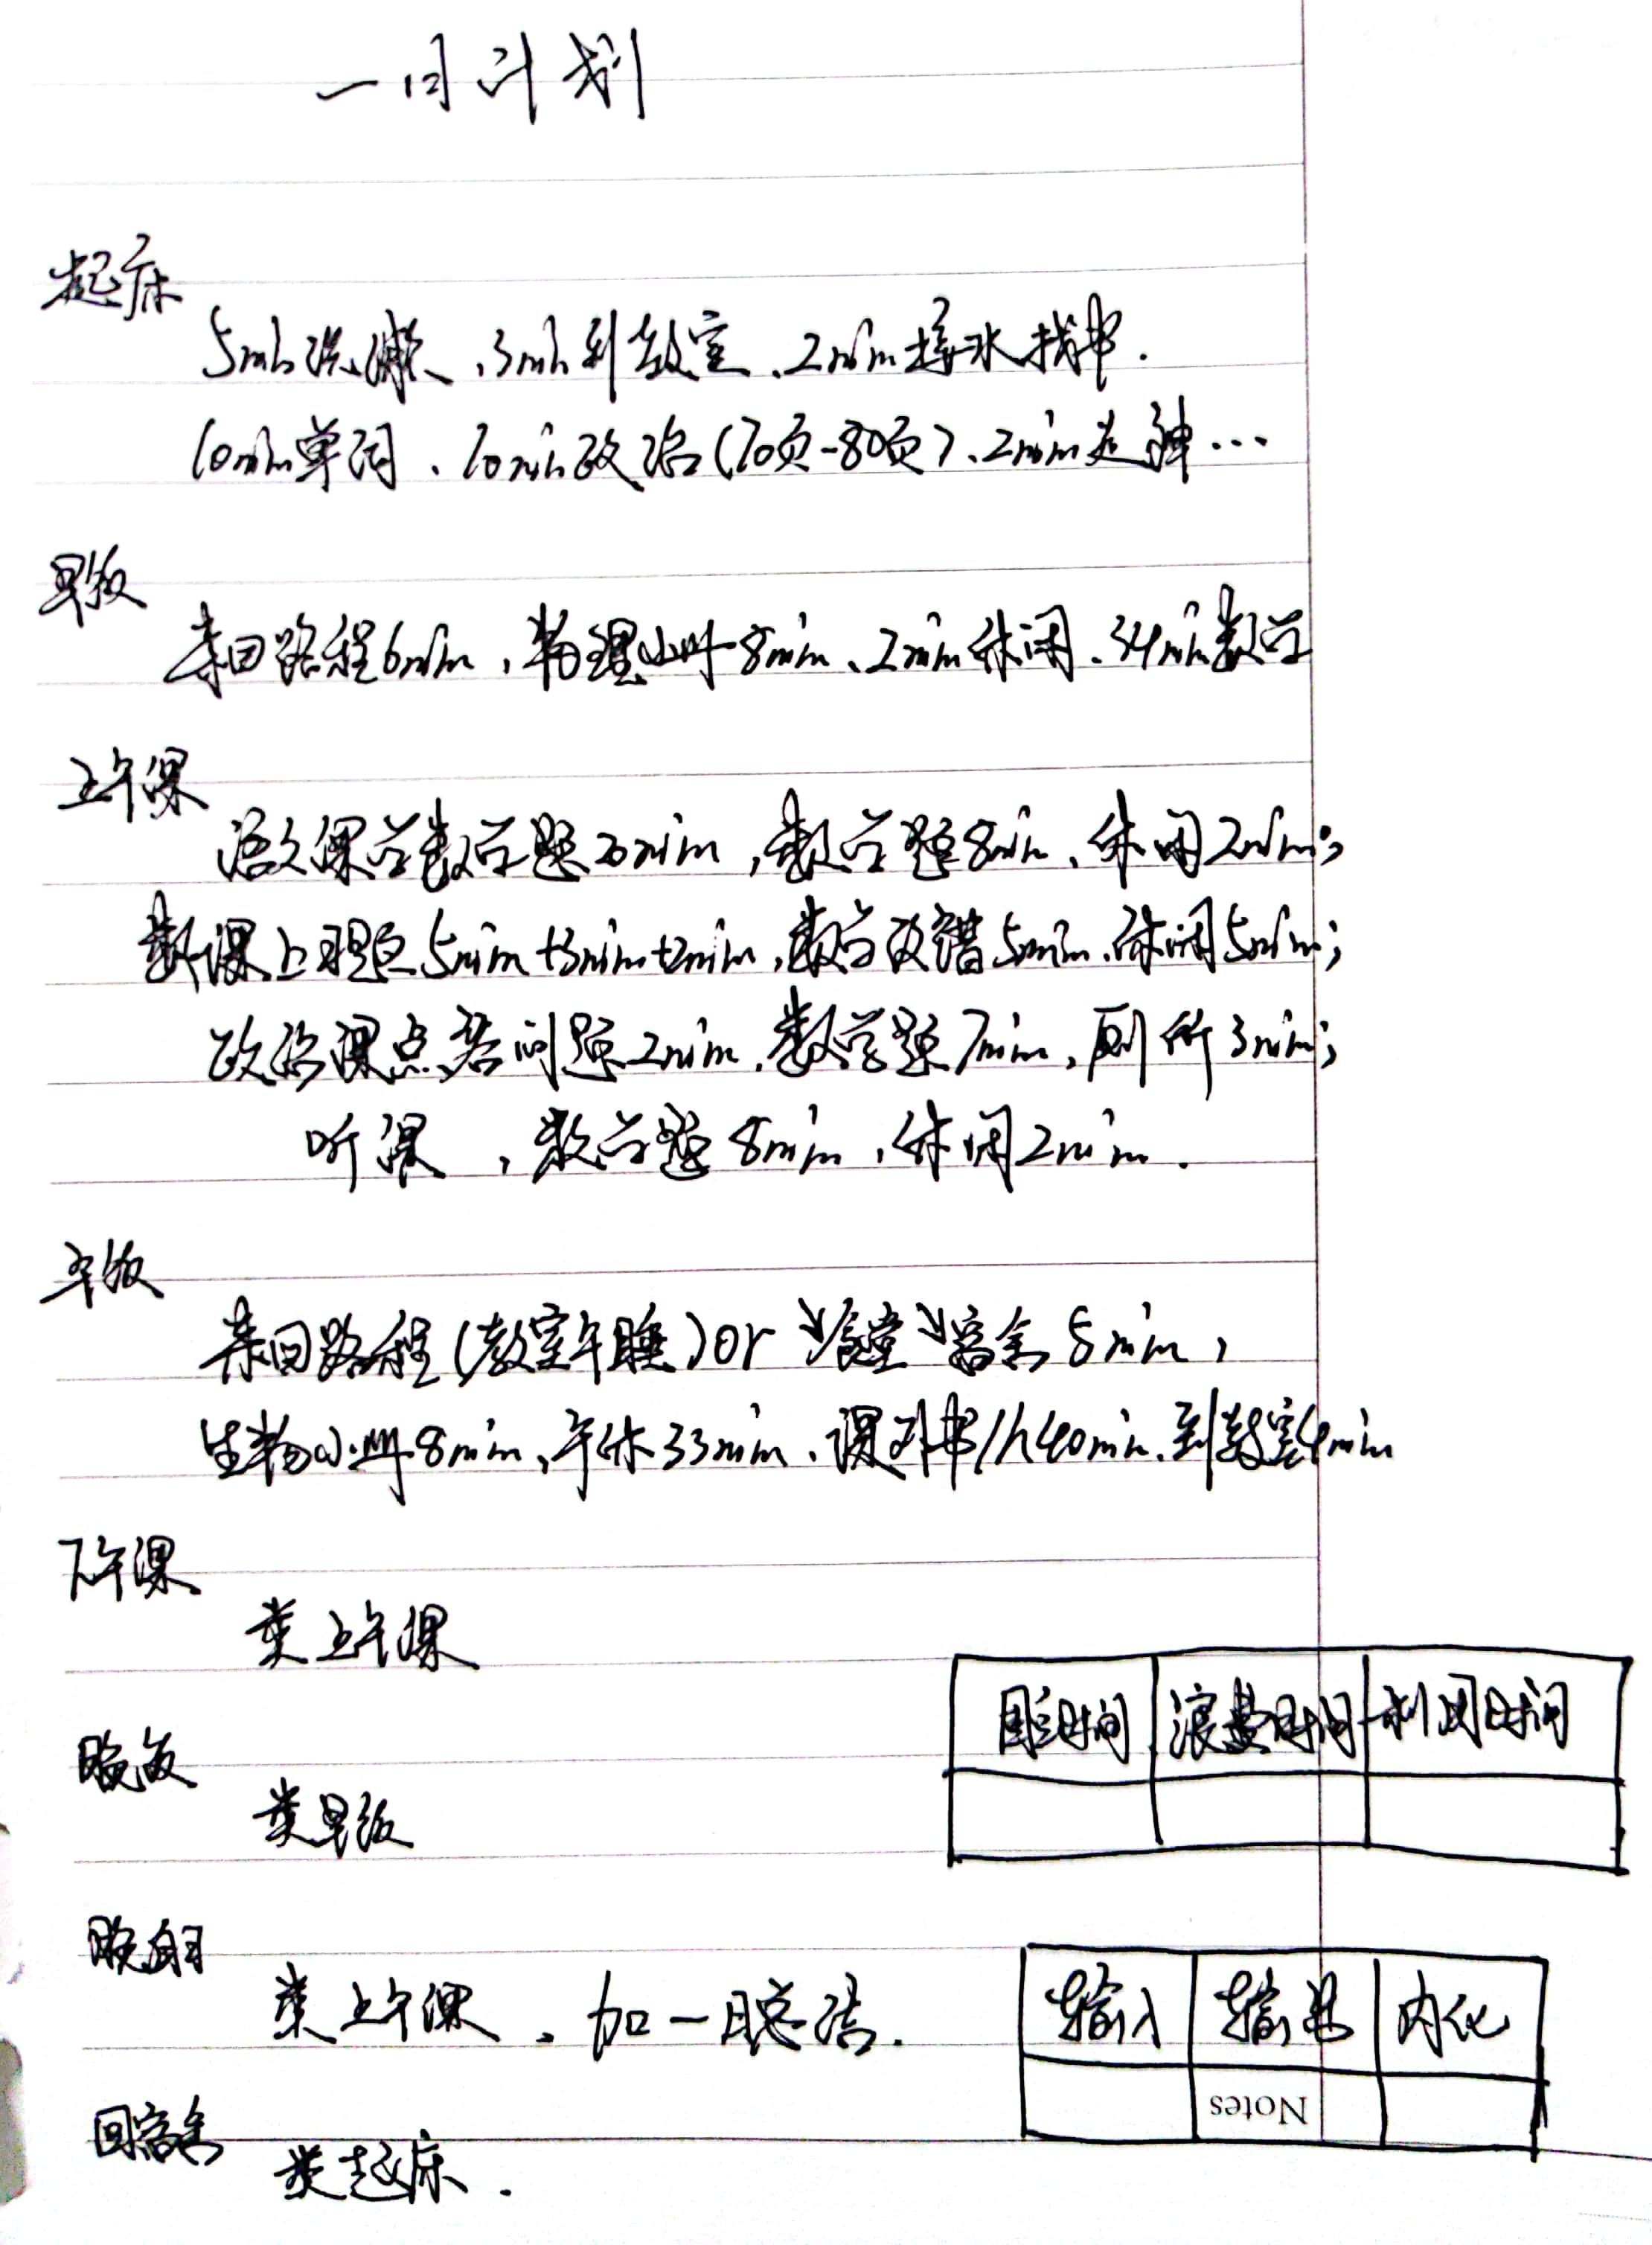 一日计划
起床
5min洗漱、3min到教室、2min接水找书.
10min单词、10min政治(70页-80页)、2min走神…
早饭
来回路程6min,物理小册8min、2min休闲、34min数学
上午课
语文课前数学题20min,数学题8min、休闲2min;
数学课上习题5min+3min+2min,数学改错5min、休闲5min;
政治课点名问题2min,数学题7min,厕所3min;
听课,数学题8min,休闲2min.
午饭
来回路程(教室午睡)or→食堂→宿舍8min,
生物小册8min、午休33min、课外书1h40min、到教室4min
下午课
类上午课
晚饭
类早饭
固定时间 浪费时间 利用时间
晚自习
类上午课、加一日总结.
输入 输出 内化
Notes
回宿舍
类起床.